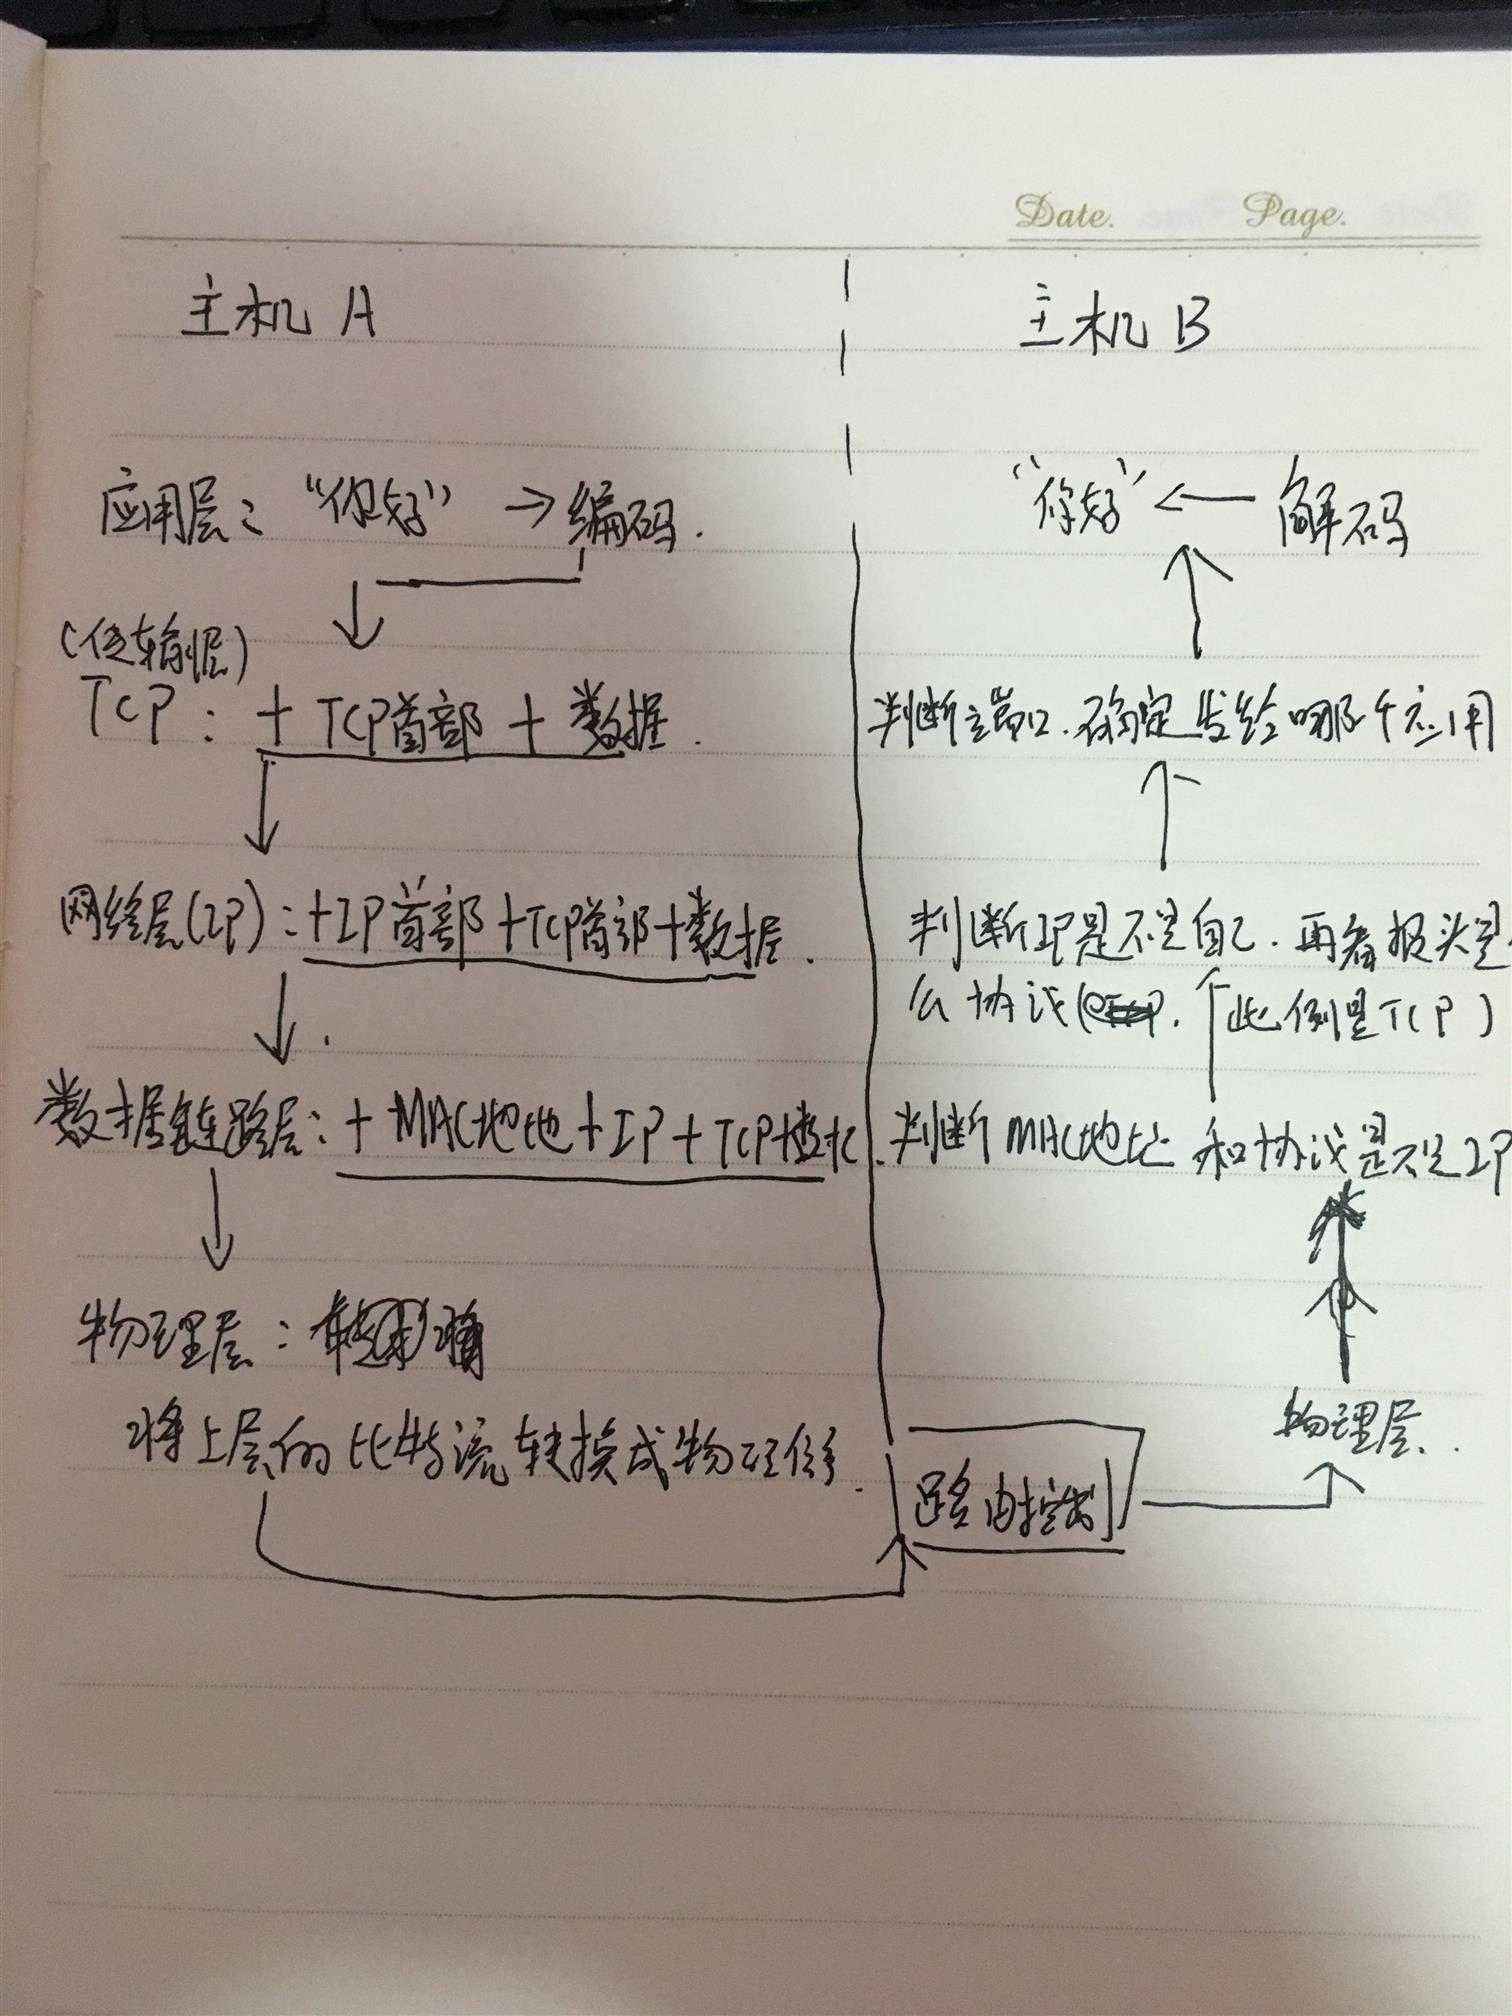 Date. Page.
主机 A
主机 B
应用层: “你好” → 编码.
“你好” ← 解码
(传输层)
TCP: + TCP首部 + 数据.
判断端口.确定发给哪个应用
网络层(IP): +IP首部+TCP首部+数据.
判断IP是不是自己.再看报头是
么协议( 此例是TCP)
数据链路层: + MAC地址+IP+TCP+数据.
判断MAC地址 和协议是不是IP
物理层:
将上层的比特流转换成物理信号.
物理层.
路由控制